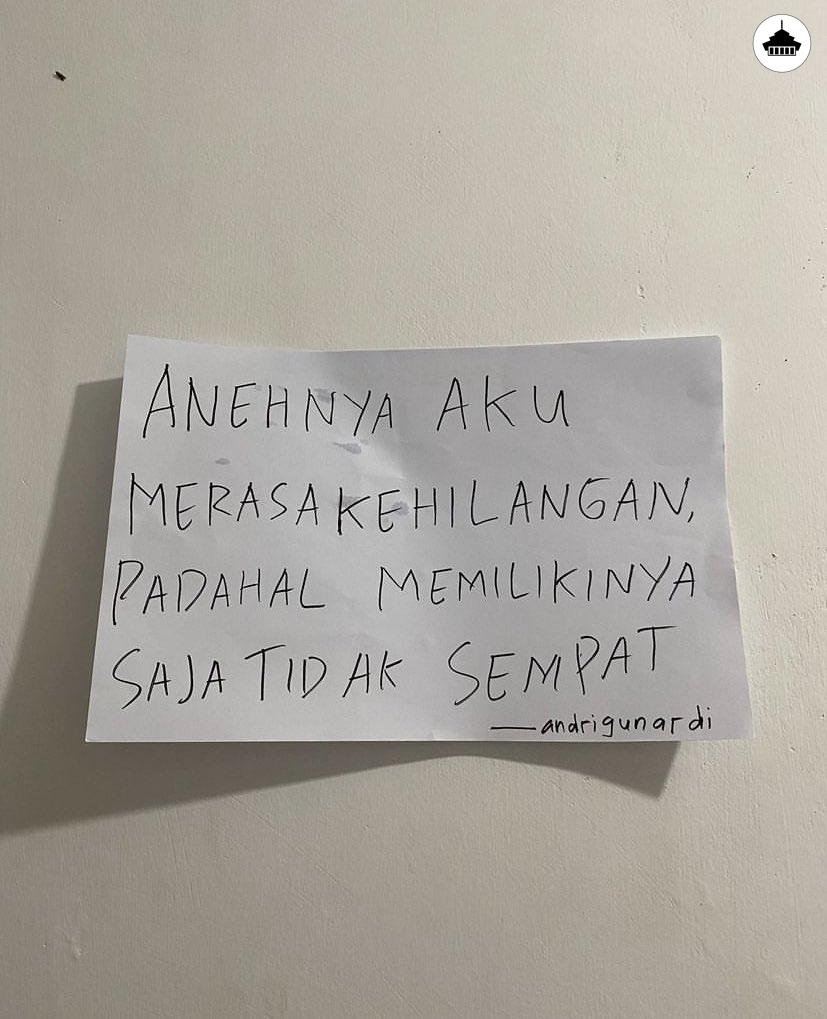 ANEHNYA AKU
MERASA KEHILANGAN,
PADAHAL MEMILIKINYA
SAJA TIDAK SEMPAT
—andrigunardi